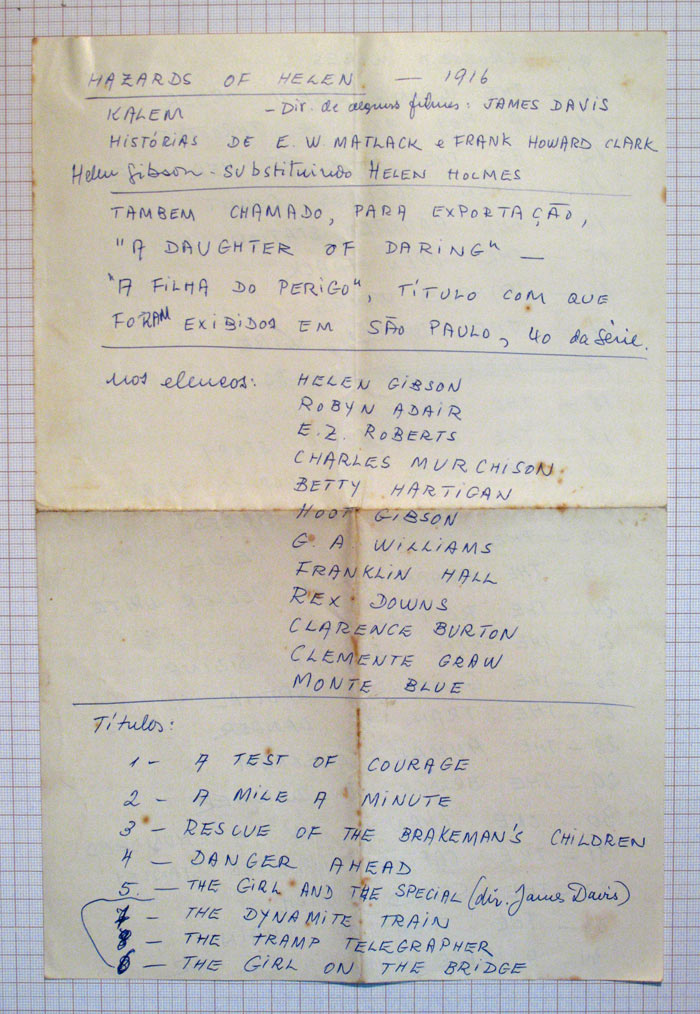 HAZARDS OF HELEN — 1916
KALEM - Dir. de alguns filmes: JAMES DAVIS
HISTÓRIAS DE E. W. MATLACK e FRANK HOWARD CLARK
Helen Gibson - substituindo HELEN HOLMES
TAMBEM CHAMADO, PARA EXPORTAÇÃO,
"A DAUGHTER OF DARING" —
"A FILHA DO PERIGO", TÍTULO COM QUE
FORAM EXIBIDOS EM SÃO PAULO, 40 da série.
nos elencos: HELEN GIBSON
ROBYN ADAIR
E.Z. ROBERTS
CHARLES MURCHISON
BETTY HARTIGAN
HOOT GIBSON
G. A. WILLIAMS
FRANKLIN HALL
REX DOWNS
CLARENCE BURTON
CLEMENTE GRAW
MONTE BLUE
Títulos:
1 - A TEST OF COURAGE
2 - A MILE A MINUTE
3 - RESCUE OF THE BRAKEMAN'S CHILDREN
4 - DANGER AHEAD
5. - THE GIRL AND THE SPECIAL (dir. James Davis)
7 - THE DYNAMITE TRAIN
8 - THE TRAMP TELEGRAPHER
6 - THE GIRL ON THE BRIDGE